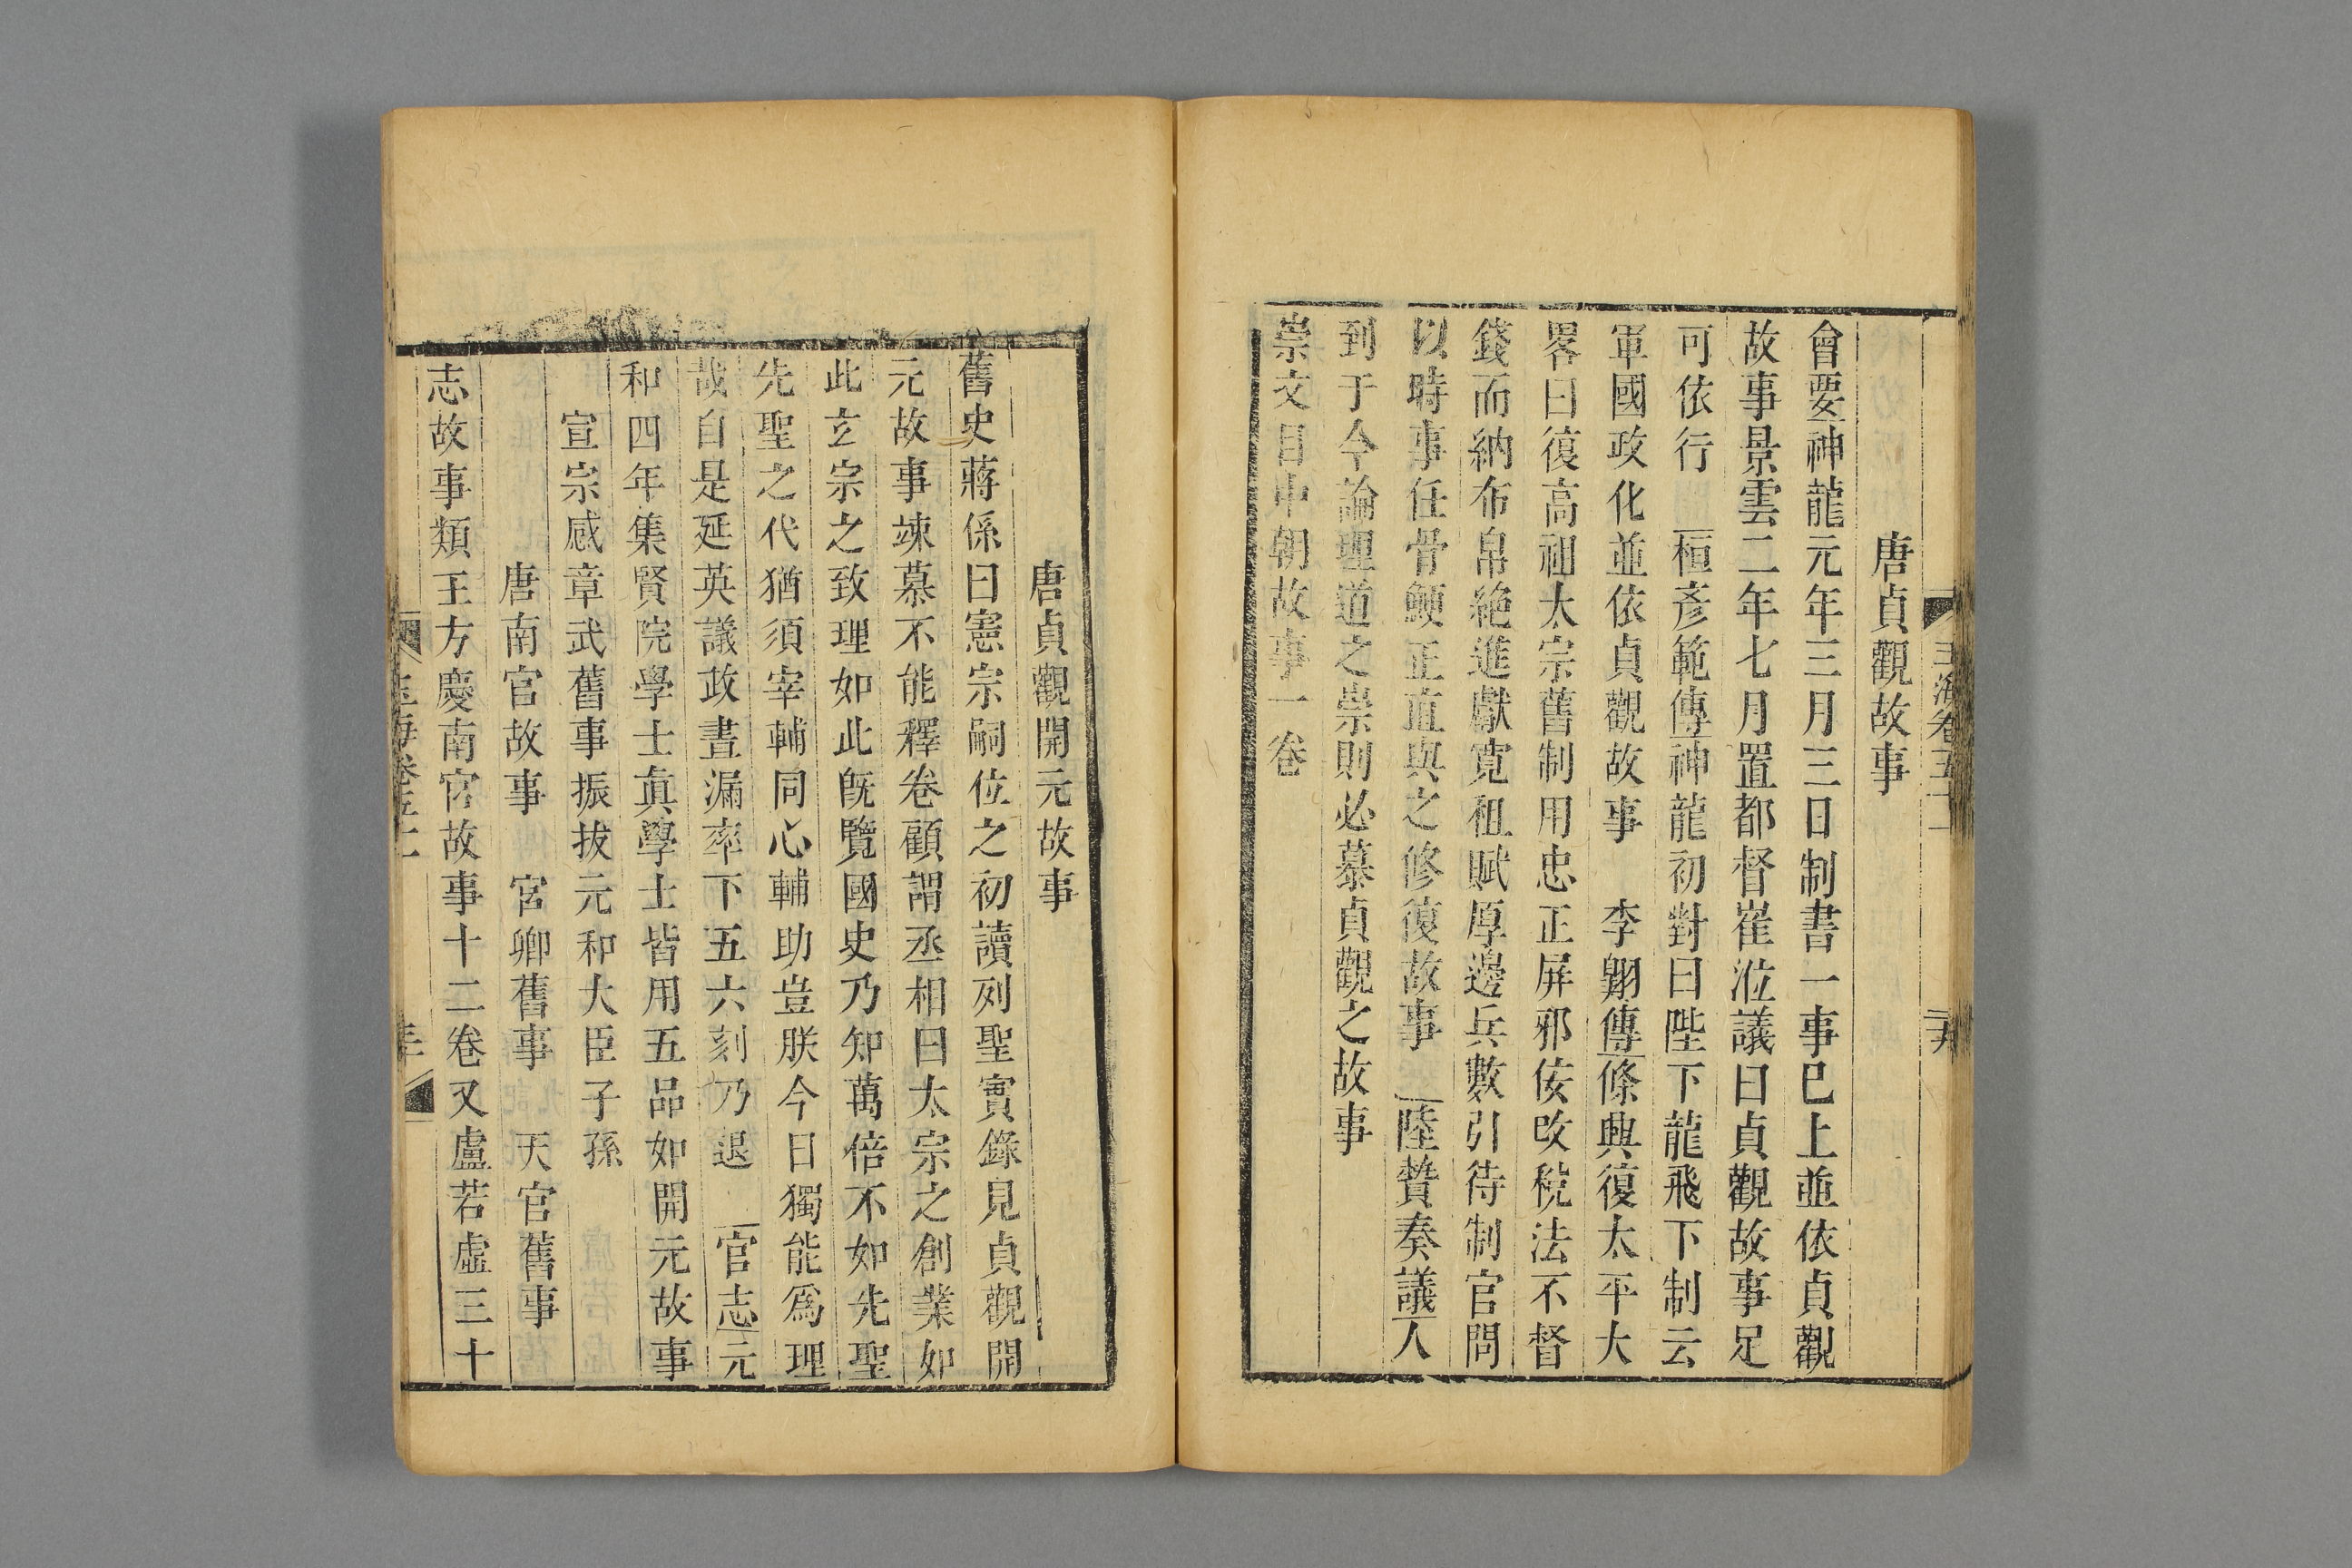 玉海卷五十一
二十九
唐貞觀故事
會要神龍元年三月三日制書一事已上並依貞觀
故事景雲二年七月置都督崔涖議曰貞觀故事足
可依行 桓彥範傳神龍初對曰陛下龍飛下制云
軍國政化並依貞觀故事 李翺傳條興復太平大
畧曰復高祖太宗舊制用忠正屏邪佞改稅法不督
錢而納布帛絕進獻寬租賦厚邊兵數引待制官問
以時事任骨鯁正直與之修復故事 陸贄奏議人
到于今論理道之崇則必慕貞觀之故事
崇文目中朝故事一卷
唐貞觀開元故事
舊史蔣係曰憲宗嗣位之初讀列聖實錄見貞觀開
元故事竦慕不能釋卷顧謂丞相曰太宗之創業如
此玄宗之致理如此旣覽國史乃知萬倍不如先聖
先聖之代猶須宰輔同心輔助豈朕今日獨能爲理
哉自是延英議政晝漏率下五六刻乃退 官志元
和四年集賢院學士眞學士皆用五品如開元故事
宣宗感章武舊事振拔元和大臣子孫
唐南官故事 宮卿舊事 天官舊事
志故事類王方慶南官故事十二卷又盧若虛三十
玉海卷五十一
三十